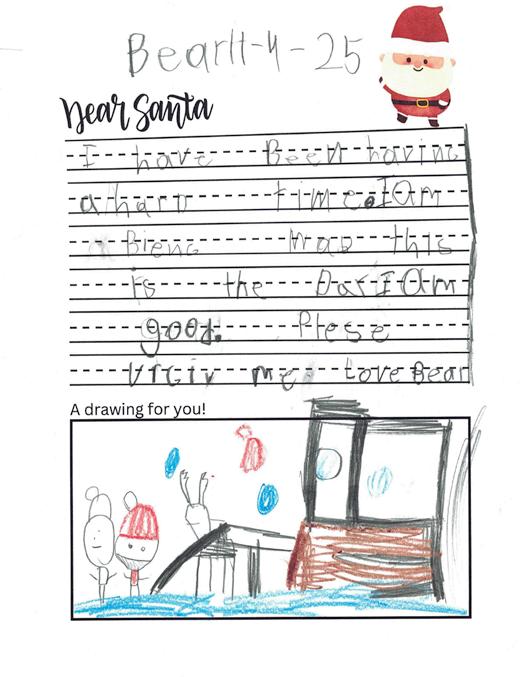 Bear 11-4-25
Dear Santa
I have Been having
a harD time. I Am
Bieng maD this
is the Day I Am
good. Plese
vrgiv me Love Bear
A drawing for you!